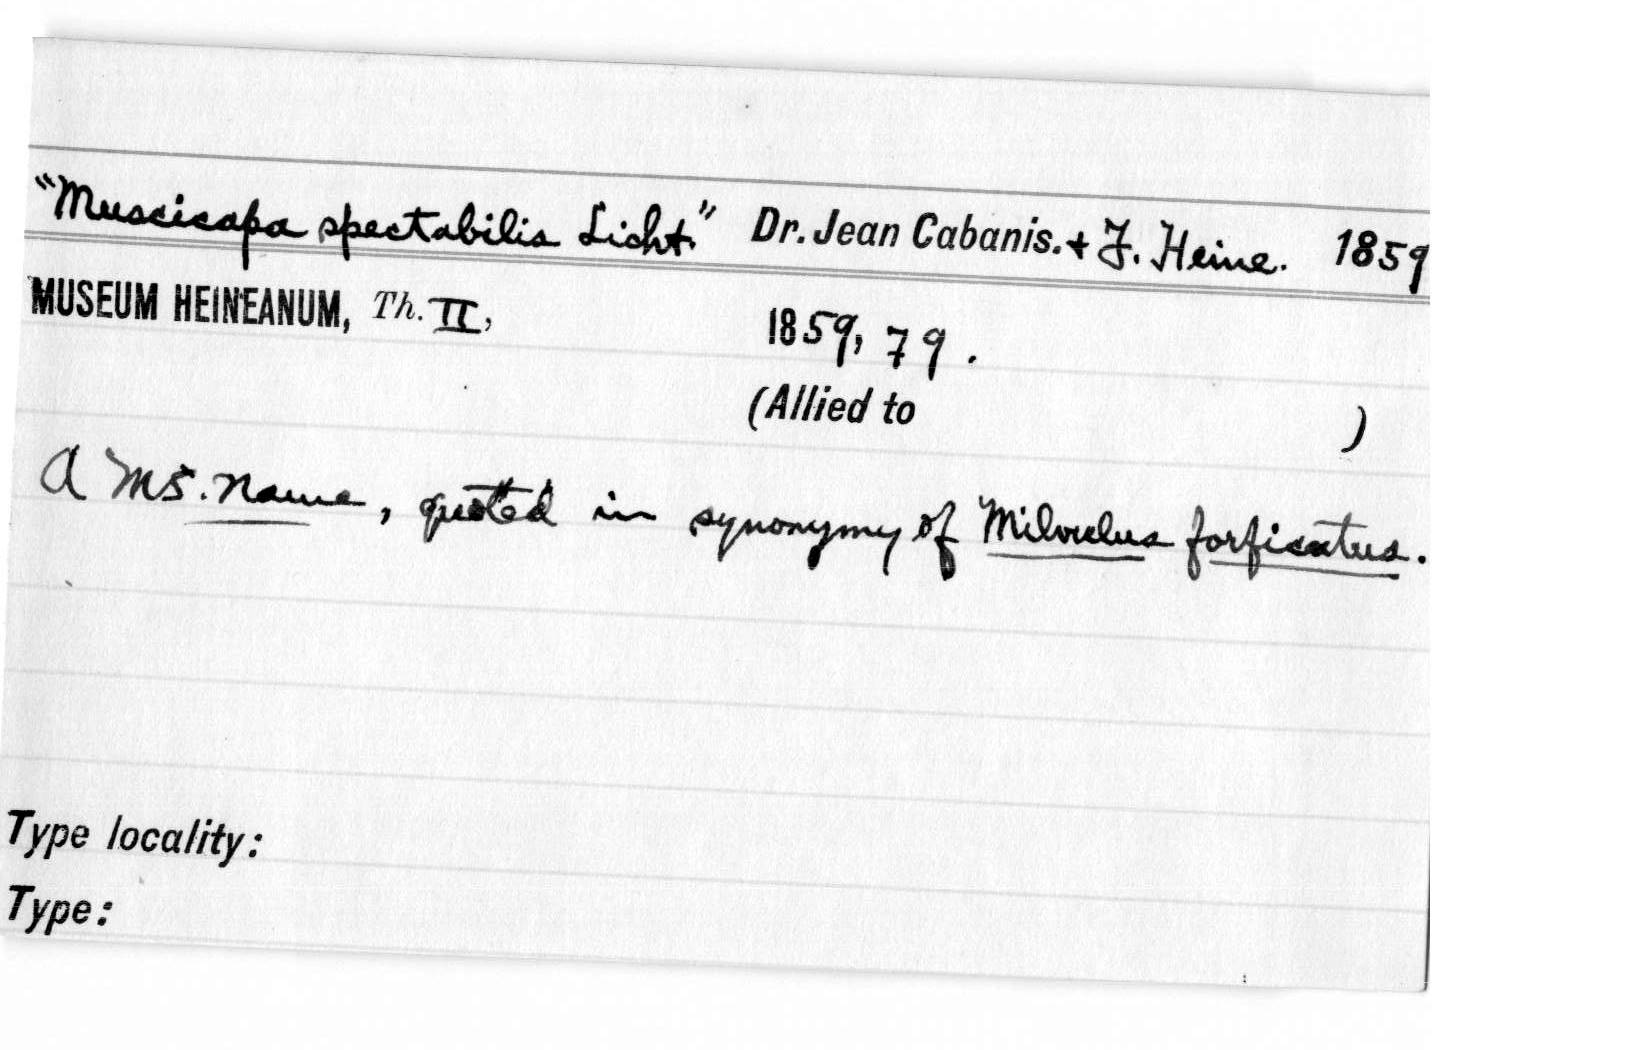 "Muscicapa spectabilis Licht." Dr. Jean Cabanis. + F. Heine. 1859
MUSEUM HEINEANUM, Th. II, 1859, 79.
(Allied to )
A MS. name, quoted in synonymy of Milvulus forficatus.
Type locality:
Type: